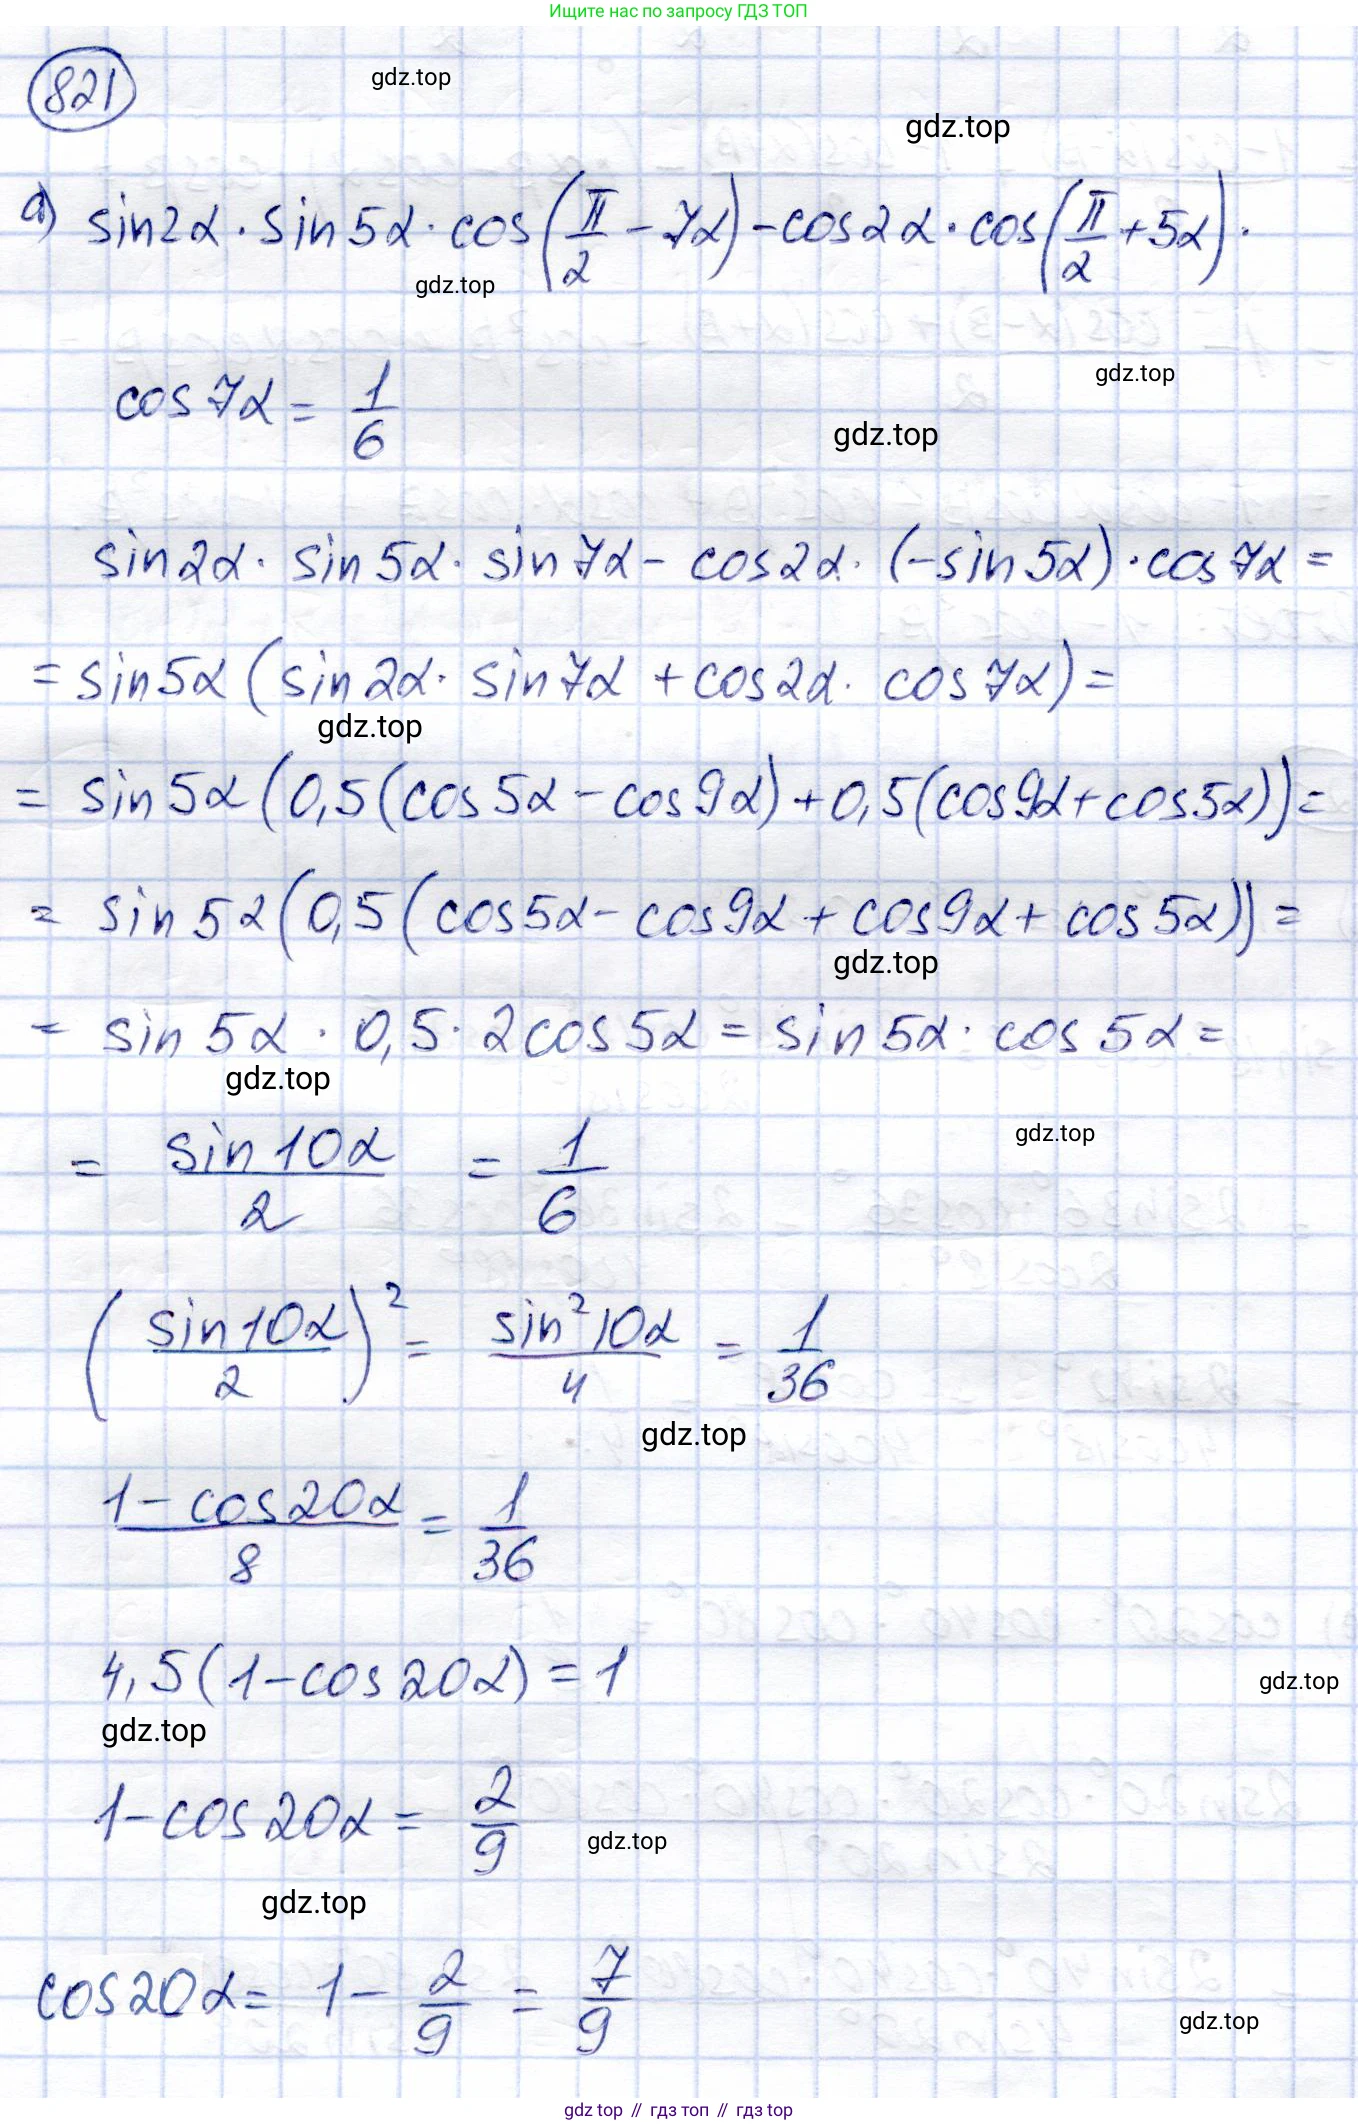 Ищите нас по запросу ГДЗ ТОП
821
gdz.top
gdz.top
а) sin2α · sin5α · cos(π/2 − 7α) − cos2α · cos(π/2 + 5α) ·
gdz.top
cos7α = 1/6
gdz.top
gdz.top
sin2α · sin5α · sin7α − cos2α · (−sin5α) · cos7α =
= sin5α (sin2α · sin7α + cos2α · cos7α) =
gdz.top
= sin5α (0,5(cos5α − cos9α) + 0,5(cos9α + cos5α)) =
= sin5α (0,5(cos5α − cos9α + cos9α + cos5α)) =
gdz.top
= sin5α · 0,5 · 2cos5α = sin5α · cos5α =
gdz.top
gdz.top
= sin10α/2 = 1/6
(sin10α/2)² = sin²10α/4 = 1/36
gdz.top
1−cos20α/8 = 1/36
4,5(1−cos20α) = 1
gdz.top
gdz.top
1−cos20α = 2/9
gdz.top
gdz.top
cos20α = 1 − 2/9 = 7/9
gdz.top
gdz top // гдз топ // гдз top